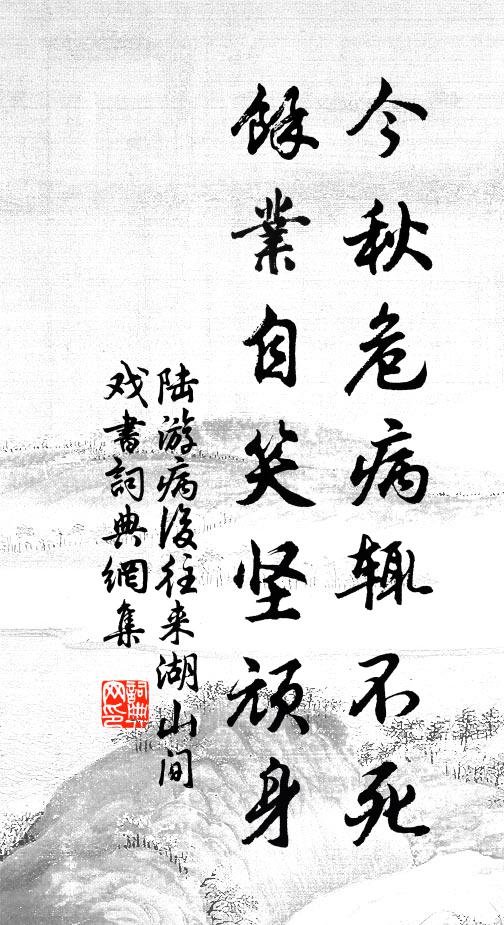 今秋危病辄不死
餘業自笑坚頑身
陆游病後往来湖山间
戏書詞典網集
詞典
网印